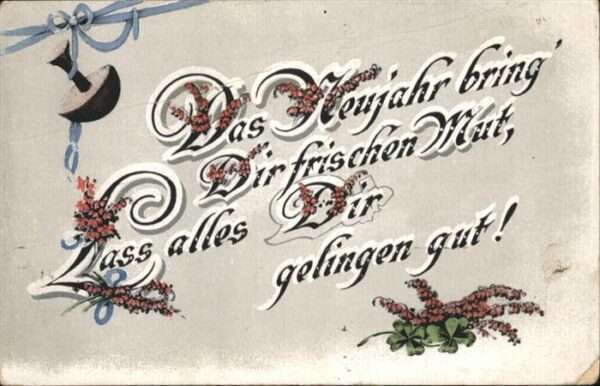 Das Neujahr bring'
Dir frischen Mut,
Lass alles Dir
gelingen gut!